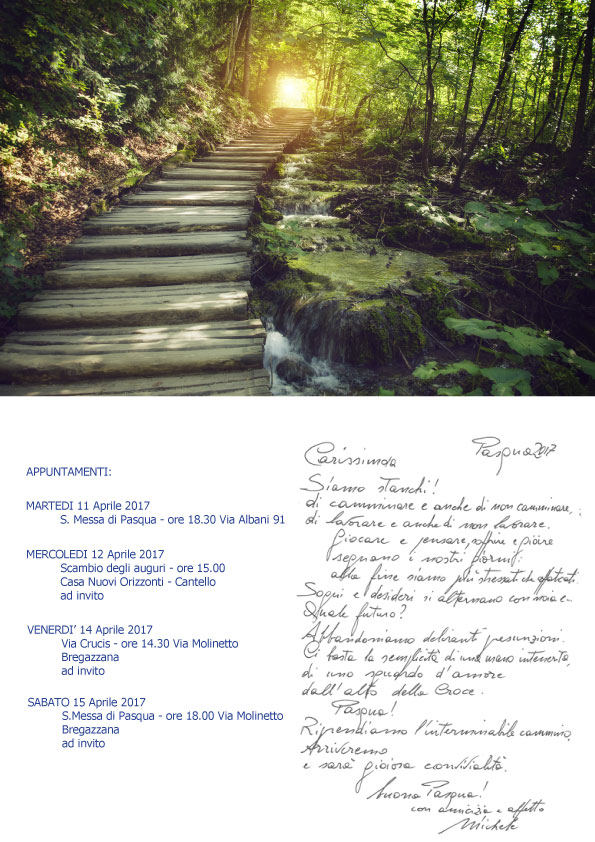 APPUNTAMENTI:
MARTEDI 11 Aprile 2017
S. Messa di Pasqua - ore 18.30 Via Albani 91
MERCOLEDI 12 Aprile 2017
Scambio degli auguri - ore 15.00
Casa Nuovi Orizzonti - Cantello
ad invito
VENERDI’ 14 Aprile 2017
Via Crucis - ore 14.30 Via Molinetto
Bregazzana
ad invito
SABATO 15 Aprile 2017
S.Messa di Pasqua - ore 18.00 Via Molinetto
Bregazzana
ad invito
Pasqua 2017
Carissimda
Siamo stanchi!
di camminare e anche di non camminare,
di lavorare e anche di non lavorare.
Giocare e pensare, soffrire e gioire
segnano i nostri giorni:
alla fine siamo più stressati che affaticati.
Sogni e desideri si alternano con noia e
Quale futuro?
Abbandoniamo deliranti presunzioni.
Ci basta la semplicità di una mano intenerita,
di uno sguardo d'amore
dall'alto della Croce.
Pasqua!
Riprendiamo l'interminabile cammino,
Arriveremo
e sarà gioiosa convivialità.
buona Pasqua!
con amicizia e affetto
Michele